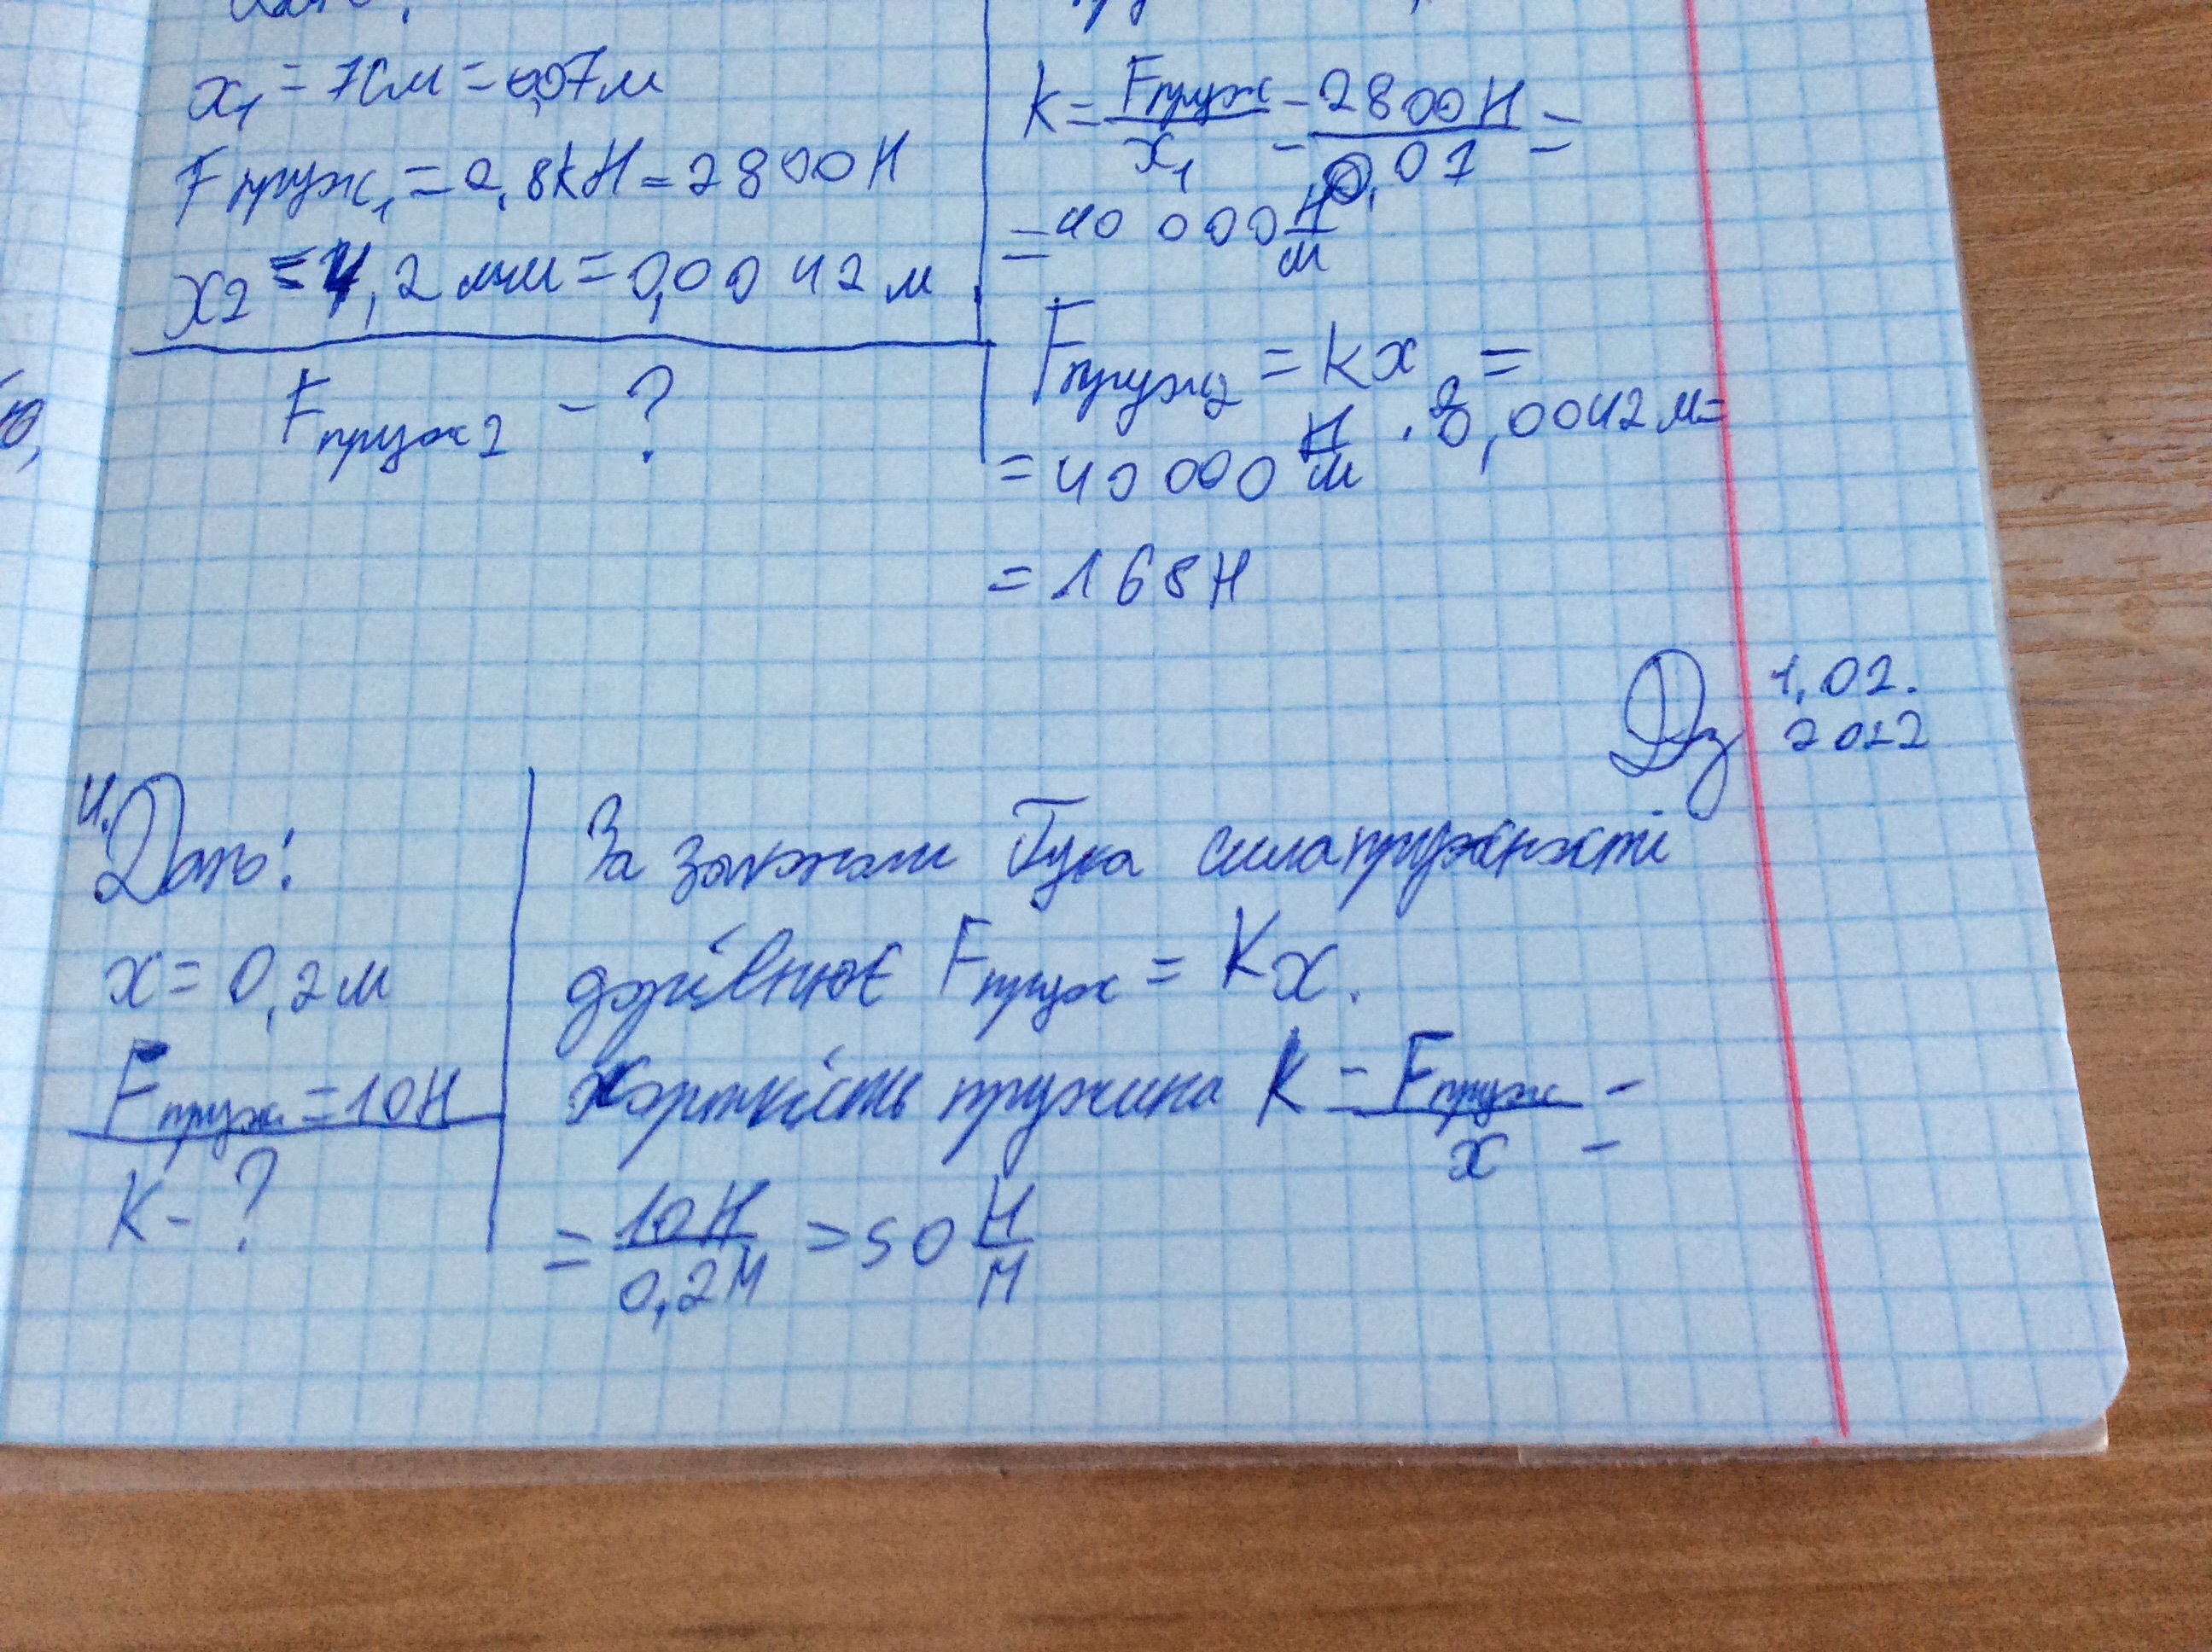 x₁ = 7см = 0,07м
Fпруж₁ = 2,8kH = 2800H
x2 = 4,2 мм = 0,0042 м
Fпруж2 - ?
k = Fпруж/x₁ = 2800H/0,07 =
= 40 000 H/м
Fпруж2 = kx2 =
= 40 000 H/м · 0,0042 м =
= 168H
Дз 1.02.
2022
4. Дано:
x = 0,2м
Fпруж = 10H
k - ?
За законом Гука сила пружності
дорівнює Fпруж = Kx.
Жорткість пружина k = Fпруж/x =
= 10H/0,2м = 50 H/м